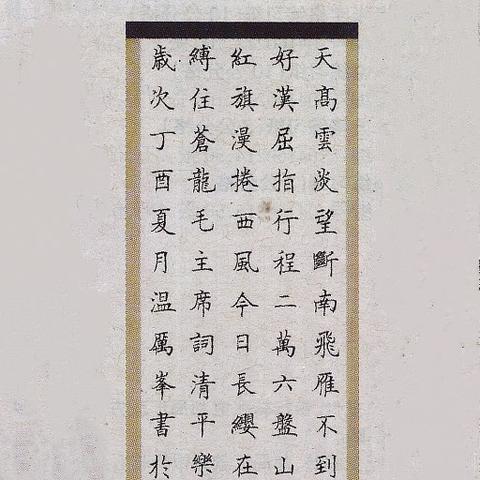 天高雲淡望斷南飛雁不到
好漢屈指行程二萬六盤山
紅旗漫捲西風今日長纓在
縛住蒼龍毛主席詞清平樂
歳次丁酉夏月温厲峯書於